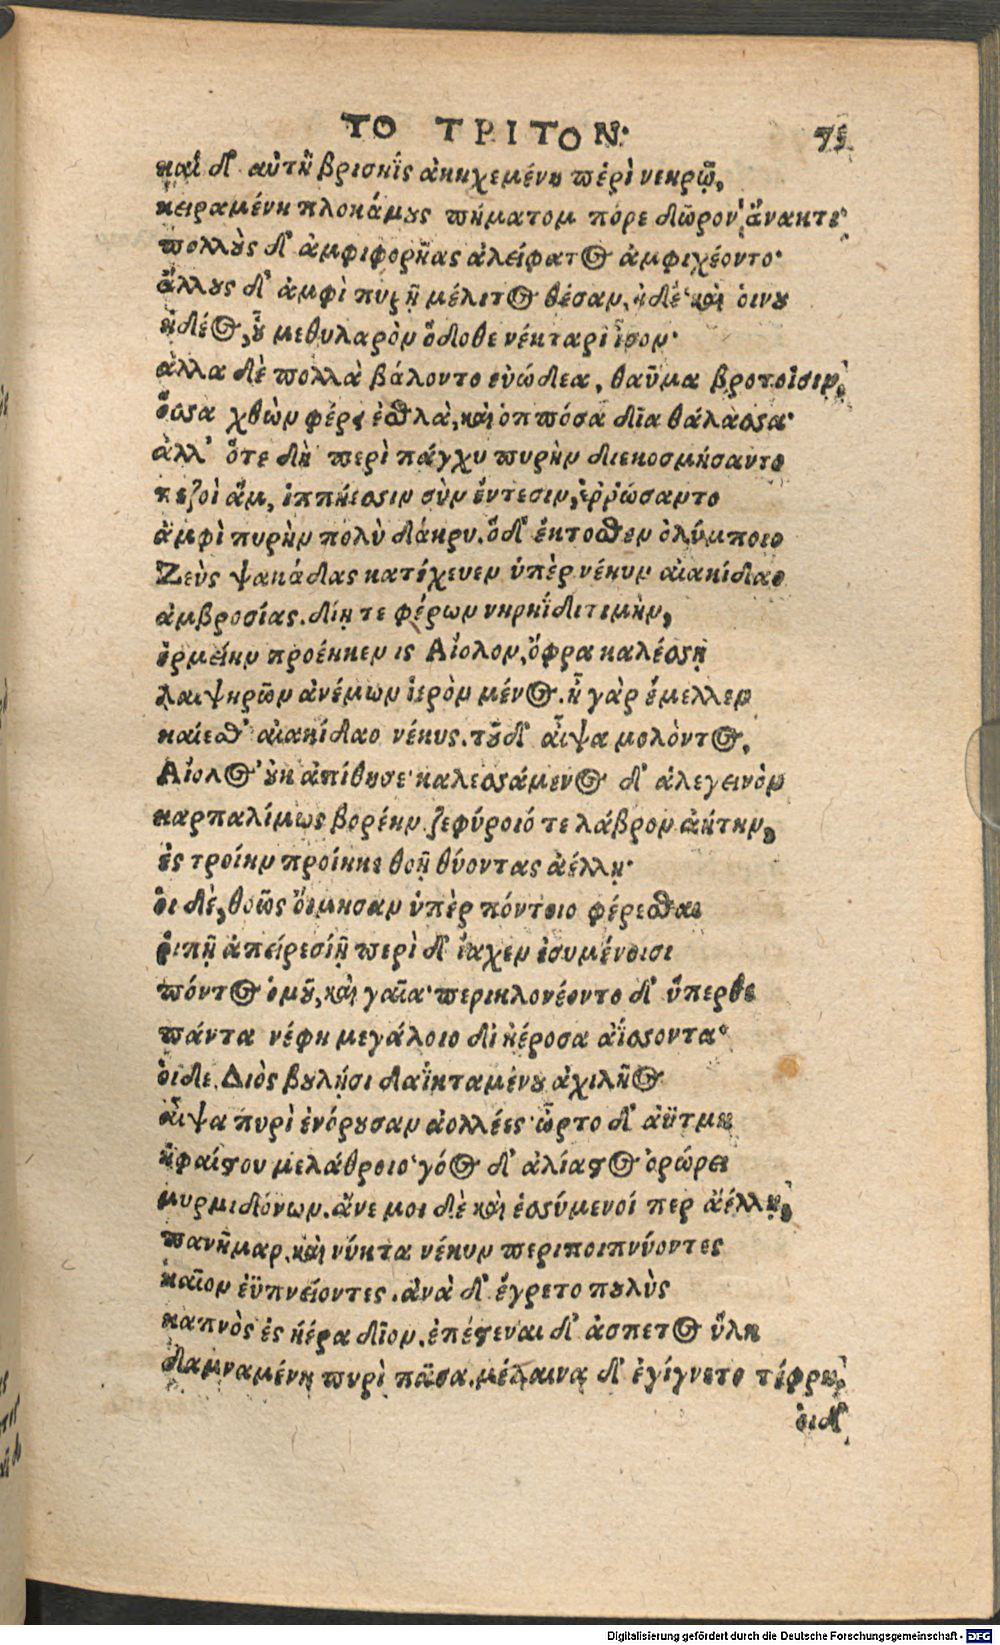 ΤΟ ΤΡΙΤΟΝ. 75
καὶ δ' αὐτὴ βρισηῒς ἀκηχεμένη περὶ νεκρῷ,
κειραμένη πλοκάμους πύματον πόρε δῶρον ἄνακτι·
πολλοὺς δ' ἀμφιφορῆας ἀλείφατος ἀμφιχέοντο·
ἄλλους δ' ἀμφὶ πυρῇ μέλιτος θέσαν, ἠδὲ καὶ οἴνου
ἡδέος, οὗ μεθυλαρὸν ὄδοθε νέκταρι ἶσον·
ἀλλα δὲ πολλὰ βάλοντο εὐώδεα, θαῦμα βροτοῖσιν,
ὅσσα χθὼν φέρε ἐσθλὰ, καὶ ὁππόσα δῖα θάλασσα·
ἀλλ' ὅτε δὴ περὶ πάγχυ πυρὴν διεκοσμήσαντο
πεζοὶ ἅμ, ἱππήεσσιν σὺν ἔντεσιν, ἐῤῥώσαντο
ἀμφὶ πυρὴν πολὺ δάκρυ. ὁ δ' ἔκτοσθεν ὀλύμποιο
Ζεὺς ψακάδας κατέχευεν ὑπὲρ νέκυν αἰακίδαο
ἀμβροσίας. δίῃ τε φέρων νηρηΐδι τιμὴν,
ἑρμείην προέηκεν ις Αἴολον, ὄφρα καλέσσῃ
λαιψηρῶν ἀνέμων ἱερὸν μένος. ἦ γὰρ ἔμελλεν
καίεσθ' αἰακίδαο νέκυς. τοῦ δ' αἶψα μολόντος,
Αἴολος οὐκ ἀπίθησε· καλεσσάμενος δ' ἀλεγεινὸν
καρπαλίμως βορέην ζεφύροιό τε λάβρον ἀήτην,
ἐς τροίην προίηκε θοῇ θύοντας ἀέλλῃ·
οἱ δὲ, θοῶς οἴμησαν ὑπὲρ πόντοιο φέρεσθαι
ῥιπῇ ἀπειρεσίῃ περὶ δ' ἴαχεν ἐσυμένοισι
πόντος ὁμοῦ, καὶ γαῖα· περικλονέοντο δ' ὕπερθε
πάντα νέφη μεγάλοιο δι ἠέροσα ἀΐσσοντα·
οἱ δε, Διὸς βουλῇσι δαϊκταμένου ἀχιλῆος
αἶψα πυρὶ ἐνόρουσαν ἀολλέες· ὦρτο δ' ἀϋτμὴ
ἡφαίστου μελάθροιο· γόος δ' ἀλίαστος ὀρώρει
μυρμιδόνων. ἄνε μοι δὲ καὶ ἐσσύμενοί περ ἀέλλῃ,
πανῆμαρ, καὶ νύκτα νέκυν περιποιπνύοντες
καῖον ἐϋπνείοντες. ἀνὰ δ' ἔγρετο πουλὺς
καπνὸς ἐς ἠέρα δῖον. ἐπέστεναι δ' ἀσπετος ὕλη
δαμναμένη πυρὶ πᾶσα. μέλαινα δ' ἐγίγνετο τέφρη,
οἱ δ'
Digitalisierung gefördert durch die Deutsche Forschungsgemeinschaft - DFG